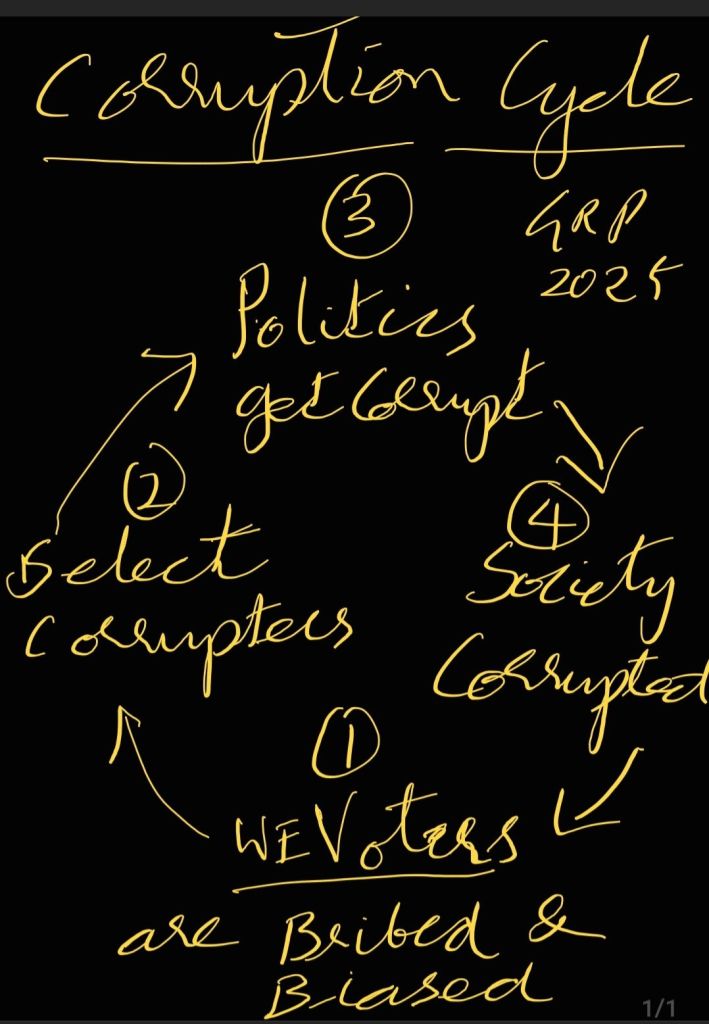 Corruption Cycle
GRP
2025
3
Politics
get Corrupt
2
Select
Corrupters
4
Society
Corrupted
1
WE Voters
are Bribed &
Biased
1/1